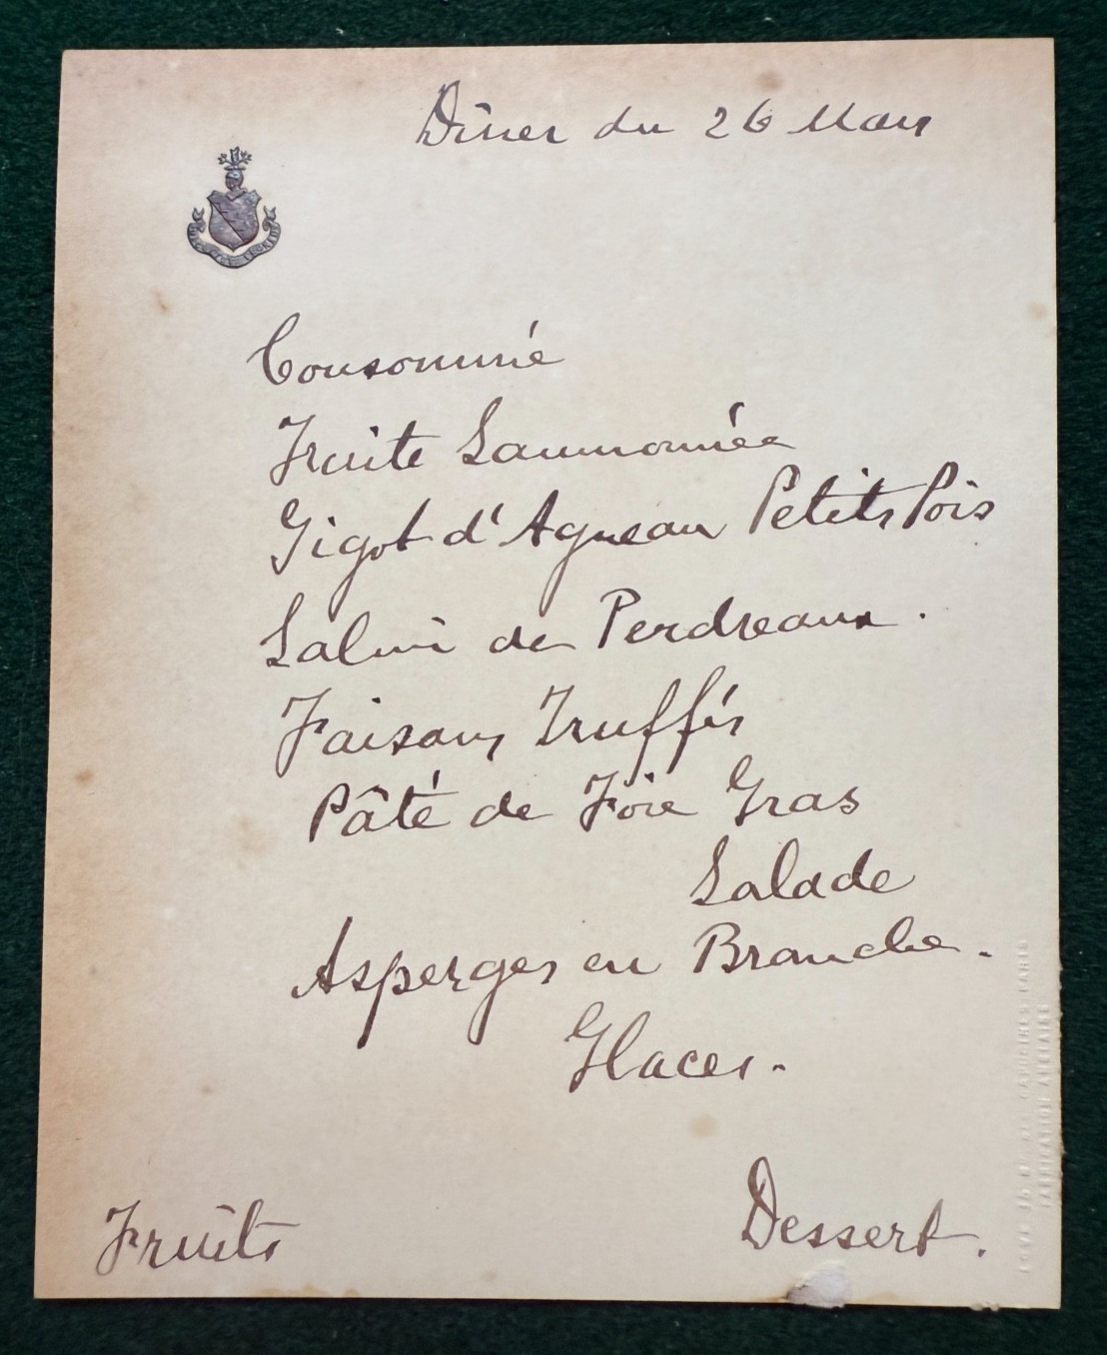 Dîner du 26 Mars
Consommé
Truite Saumonnée
Gigot d'Agneau Petits Pois
Salmi de Perdreaux.
Faisans Truffés
Pâté de Foie Gras
Salade
Asperges en Branche.
Glaces.
Fruits
Dessert.
FABRICATION ANGLAISE